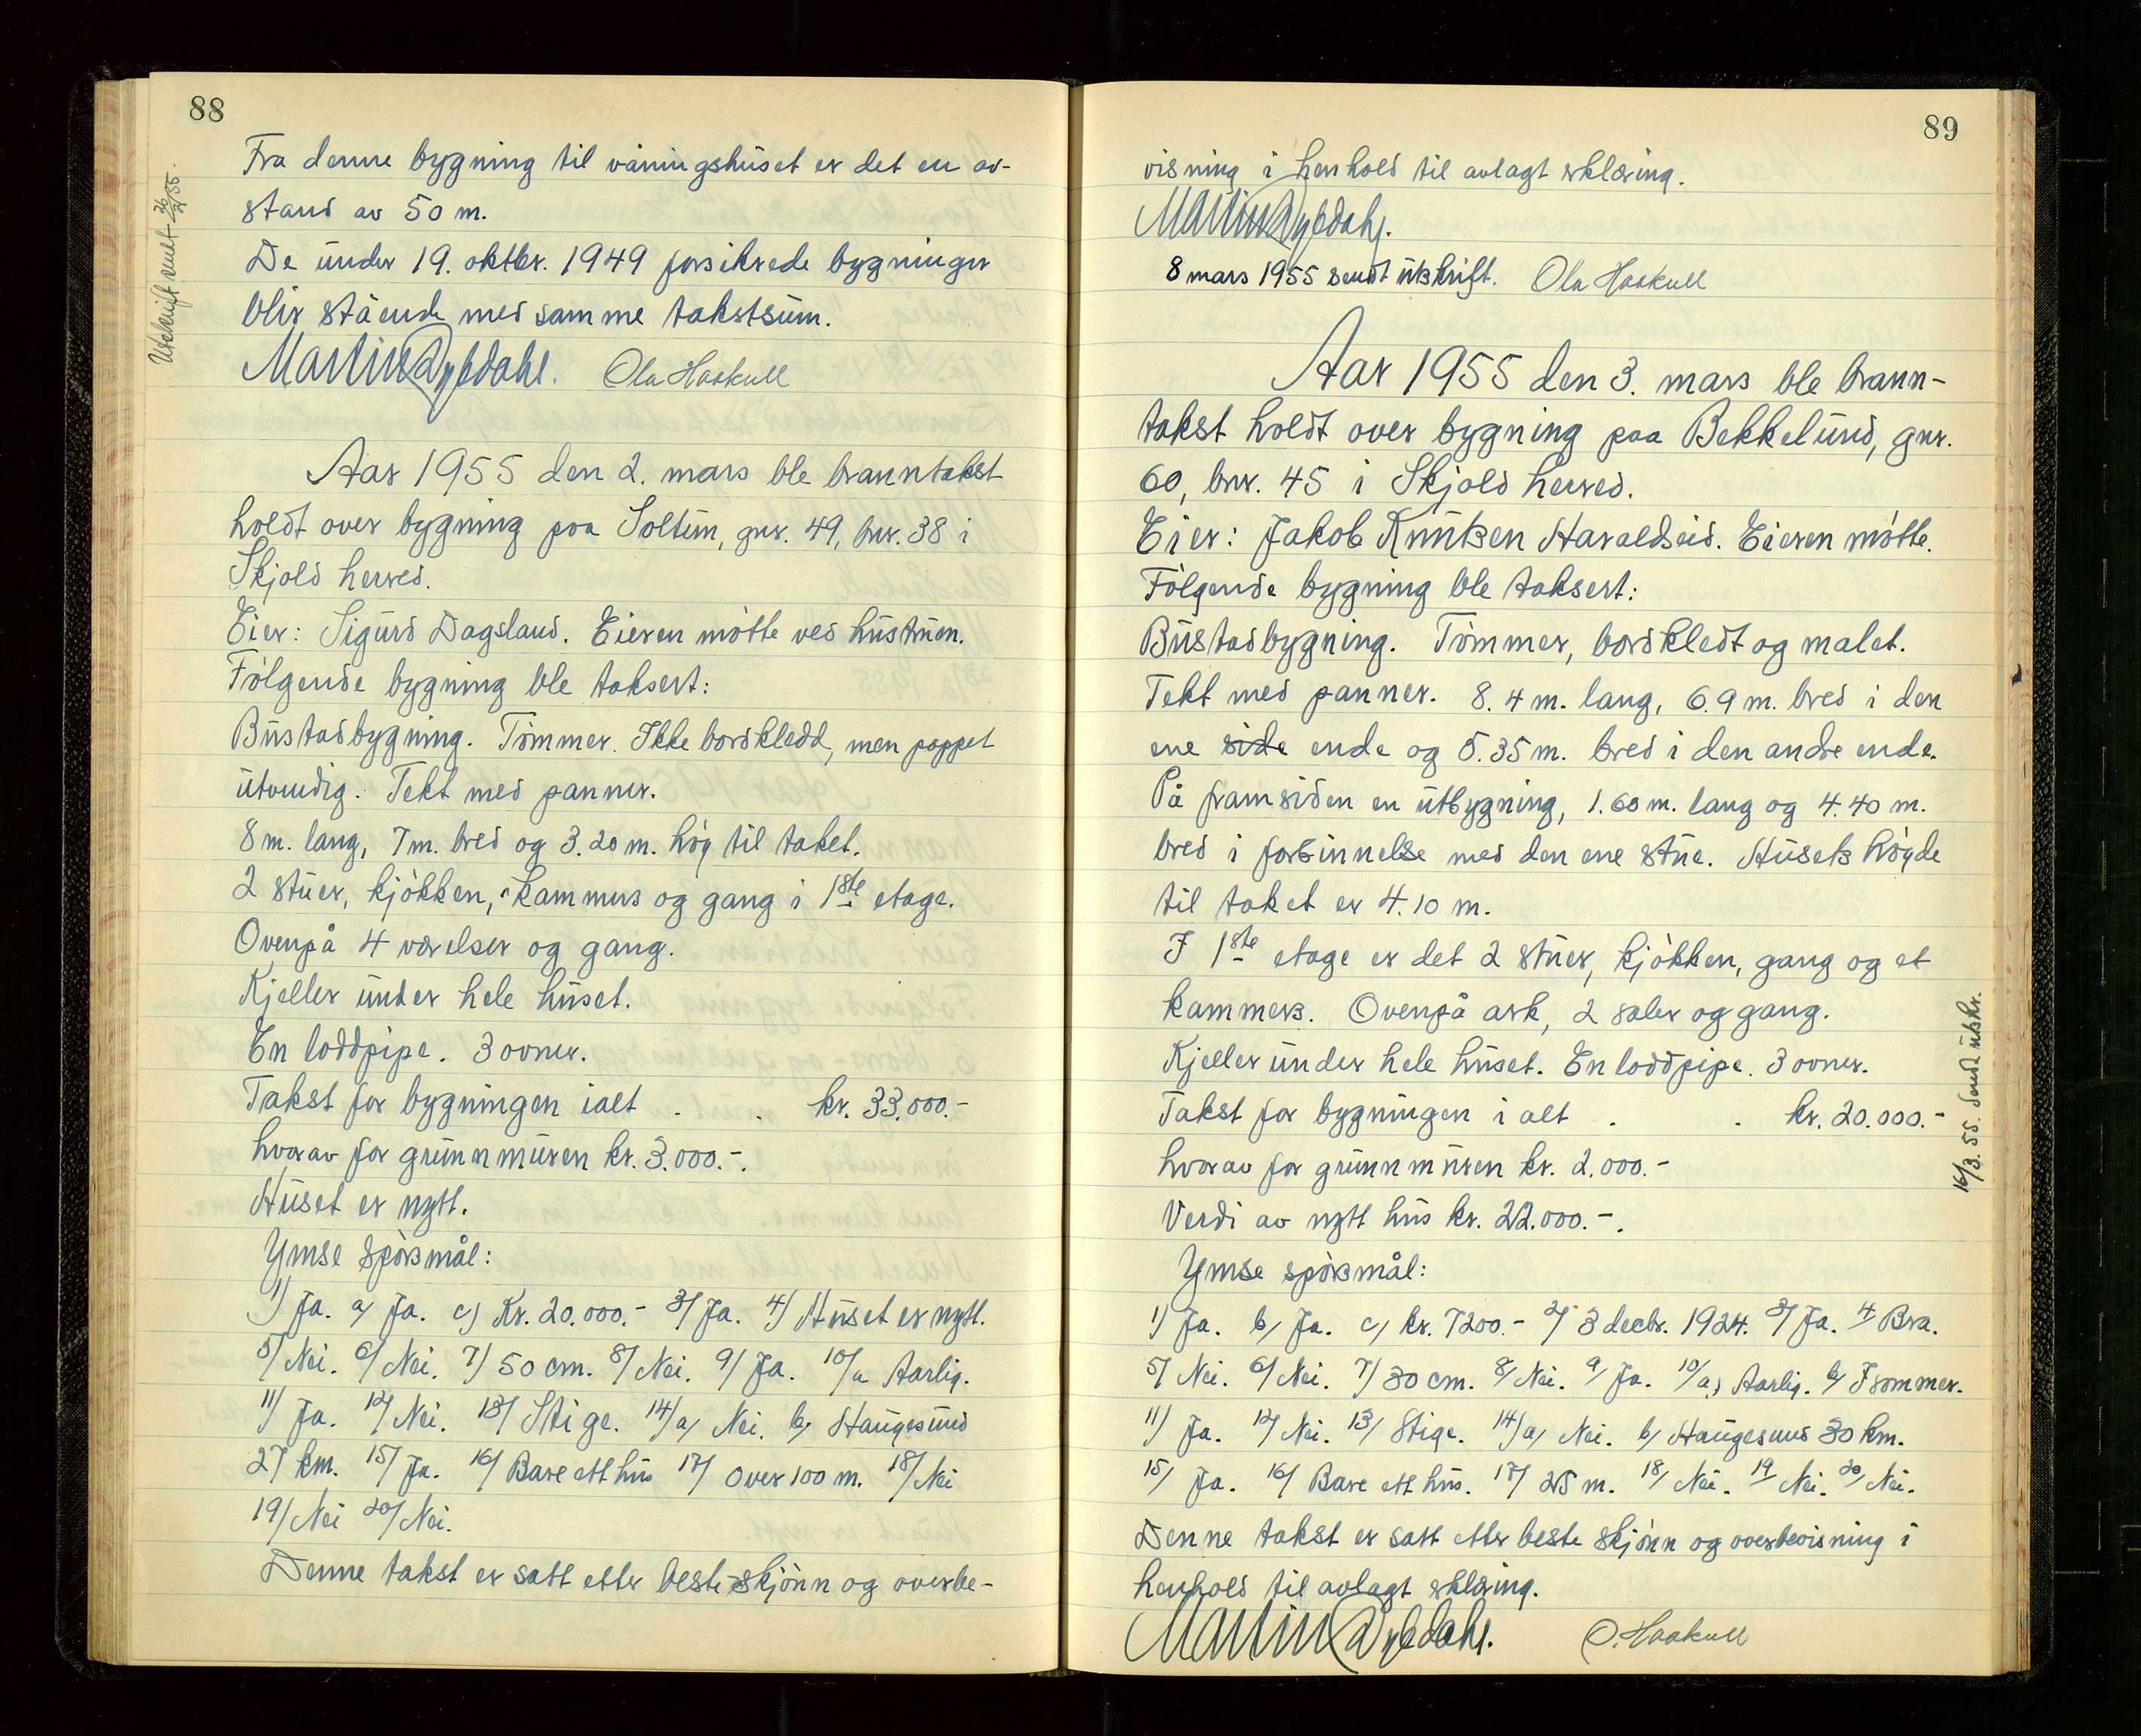 88
Utskrift sendt 26/2 55.
Fra denne bygning til våningshuset er det en av-
stand av 50 m.
De under 19. oktbr. 1949 forsikrede bygninger
blir stående med samme takstsum.
Martin Dybdahl. Ola Haskull
Aar 1955 den 2. mars ble branntakst
holdt over bygning paa Soltun, gnr. 49, bnr. 38 i
Skjold herred.
Eier: Sigurd Dagsland. Eieren møtte ved hustruen.
Følgende bygning ble taksert:
Bustadbygning. Tømmer. Ikke bordkledd, men pappet
utvendig. Tekt med panner.
8 m. lang, 7 m. bred og 3.20 m. høg til taket.
2 stuer, kjøkken, kammers og gang i 1ste etage.
Ovenpå 4 værelser og gang.
Kjeller under hele huset.
En loddpipe. 3 ovner.
Takst for bygningen ialt . . kr. 33.000.-
hvorav for grunnmuren kr. 3.000.-.
Huset er nytt.
Ymse spørsmål:
1) Ja. a) Ja. c) Kr. 20.000.- 3/ Ja. 4) Huset er nytt.
5/ Nei. 6/ Nei. 7/ 50 cm. 8/ Nei. 9/ Ja. 10/a Aarlig.
11/ Ja. 12/ Nei. 13/ Stige. 14/a) Nei. b) Haugesund
27 km. 15/ Ja. 16/ Bare ett hus 17/ over 100 m. 18/ Nei
19/ Nei 20/ Nei.
Denne takst er satt etter beste skjønn og overbe-
89
visning i henhold til avlagt erklæring.
Martin Dybdahl.
8 mars 1955 sendt utskrift. Ola Haskull
Aar 1955 den 3. mars ble brann-
takst holdt over bygning paa Bekkelund, gnr.
60, bnr. 45 i Skjold herred.
Eier: Jakob Knutsen Haraldseid. Eieren møtte.
Følgende bygning ble taksert:
Bustadbygning. Tømmer, bordkledt og malet.
Tekt med panner. 8.4 m. lang, 6.9 m. bred i den
ene side ende og 5.35 m. bred i den andre ende.
På framsiden en utbygning, 1.60 m. lang og 4.40 m.
bred i forbinnelse med den ene stue. Husets høyde
til taket er 4.10 m.
I 1ste etage er det 2 stuer, kjøkken, gang og et
kammers. Ovenpå ark, 2 saler og gang.
Kjeller under hele huset. En loddpipe. 3 ovner.
Takst for bygningen i alt . . kr. 20.000.-
hvorav for grunnmuren kr. 2.000.-
Verdi av nytt hus kr. 22.000.-.
Ymse spørsmål:
1) Ja. b) Ja. c) kr. 7200.- 2/ 3 decbr. 1924. 3/ Ja. 4 Bra.
5/ Nei. 6/ Nei. 7/ 30 cm. 8/ Nei. 9/ Ja. 10/a) Aarlig. b) I sommer.
11/ Ja. 12/ Nei. 13/ Stige. 14/a) Nei. b) Haugesund 30 km.
15/ Ja. 16/ Bare ett hus. 17/ 25 m. 18/ Nei. 19/ Nei. 20/ Nei.
Denne takst er satt etter beste skjønn og overbevisning i
henhold til avlagt erklæring.
Martin Dybdahl. O. Haskull
16/3. 55. Sendt utskr.